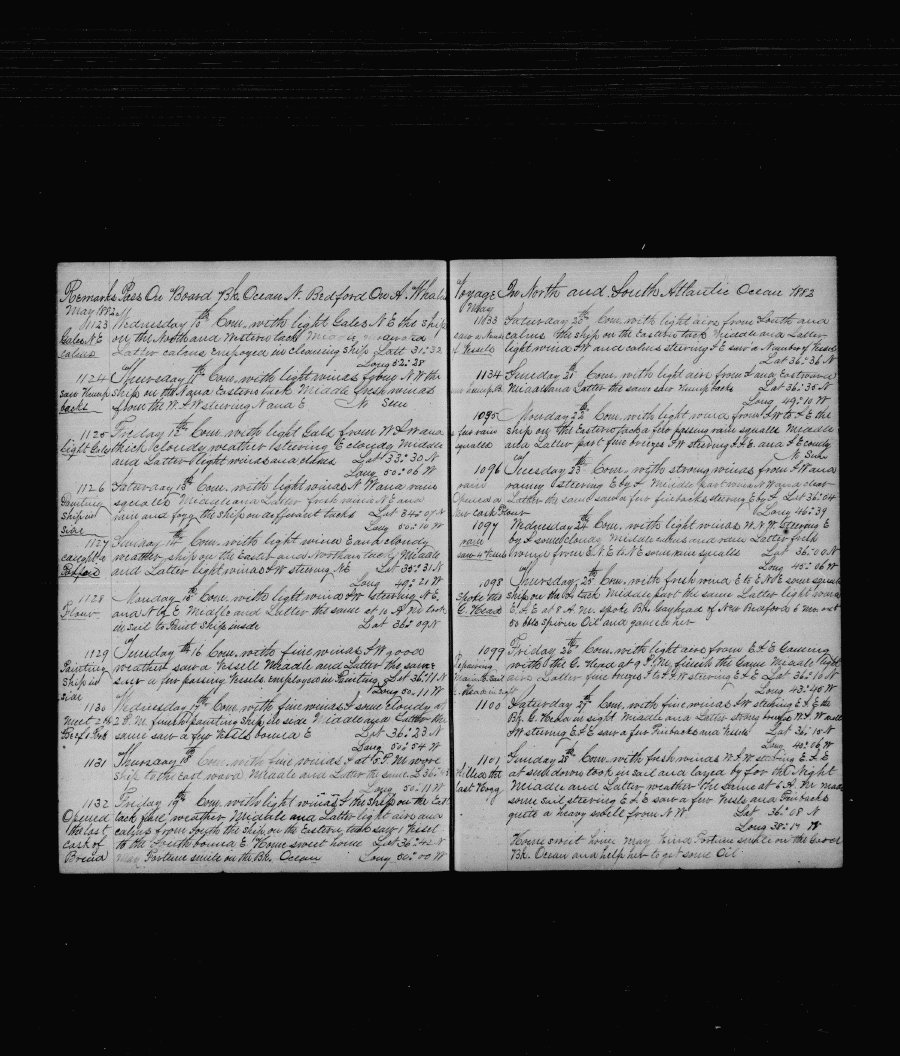 Remarks Pass On Board Bk. Ocean N. Bedford On A. Whalin
May 1882
1123 Wednesday 10th Com. with light Gales N E the Ship
Gales N E on the North and Western tack
calms Latter calms employed in cleaning Ship Latt 31:32
Long 52:28
1124 Thursday 11th Com. with light winds from N W the
saw Hump ship on the N and Eastern tack Middle fresh winds
backs from the W. S W steering N and E No Sun
1125 Friday 12th Com. with light Gals from W. S W and
light Gales thick cloudy weather steering E cloudy Middle
and Latter light winds and calms Lat 33:30 N
Long 50:06 W
1126 Saturday 13th Com. with light winds N W and rain
Painting squalls Middle and Latter fresh winds N E and
ship in rain and fogg the ship on different tacks Lat 34:07 N
side Long 50:10 W
1127 Sunday 14th Com. with light winds E and cloudy
caught a weather ship on the Eastern and Northern tack Middle
and Latter light winds S W steering N E Lat 35:31 N
Long 49:21 W
1128 Monday 15th Com. with light winds S W steering N. E.
Flour and N by E Middle and Latter the same at 10 A M took
in sail to Paint Ship inside Lat 36:09 N
1129 Tuesday th 16 Com. with fine winds S W good
Painting weather saw a Vessell Middle and Latter the same
ship in saw a few passing Vessels employed in Painting Lat 36:11 N
side Long 50:11 W
1130 Wednesday 17th Com. with fine winds S some cloudy at
2 P. M. finish painting Ship in side Middle and Latter the
Beef & Pork same saw a few Vessels bound E Lat 36:23 N
Long 50:54 W
1131 Thursday 18th Com. with fine winds S at 5 P. M. wore
ship to the Eastward Middle and Latter the same L 36:
Long 50:11 W
1132 Friday 19th Com. with light winds S the ship on the East
Opened tack fair weather Middle and Latter light airs and
the last calms from South the ship on the Eastern tack saw 1 Vessel
cask of to the South bound E. Home sweet home Lat 36:42 N
Bread May Fortune smile on the Bk. Ocean Long 50:00 W
Voyage In North and South Atlantic Ocean 1882
May
1133 Saturday 20th Com. with light airs from South and
calms the ship on the Eastern tack Middle and Latter
Vessels light wind S W and calms steering S E saw a Number of Vessels
Lat 36:36 N
1134 Sunday 21st Com. with light airs from S and Eastward
Hump B. Middle and Latter the same saw Humpbacks Lat 36:35 N
Long 49:10 W
1095 Monday 22nd Com. with light wind from S W to S E the
few rain ship on the Eastern tack a few passing rain squalls Middle
squalls and Latter part fine breezes S W steering S. S. E. and S E cloudy
No Sun
1096 Tuesday 23rd Com. with strong winds from S W and
rain rainy steering E by S Middle part wind N W and clear
Opened a Latter the same saw a few finbacks steering E by S Lat 36:04
new cask Flour Long 46:39
1097 Wednesday 24th Com. with light winds W. N. W. steering E
rain by S some cloudy Middle calms and rain Latter fresh
winds from E N E to N E some rain squalls Lat 36:00 N
Long 45:06 W
1098 Thursday 25th Com. with fresh wind E to E N E some squals
Spoke the ship on the S tack Middle part the same Latter light wind
G. Head E. S. E at 8 A. M. spoke Bk. Gayhead of New Bedford 6 Mon. out
60 bbls Sperm Oil and gam with her
1099 Friday 26th Com. with light airs from E. S. E Gamming
Repairing with the G. Head at 9 P. M. finish the Game Middle light
Main St. Sail airs Latter fine breezes S to S. S. W steering E. S. E Lat 36:10 N
G. Head in sight Long 43:40 W
1100 Saturday 27th Com. with fine winds S W steering E. S. E the
Bk. G. Head in sight Middle and Latter strong breeze W. S. W and
S W steering E. S. E saw a few Finbacks and Vessels Lat 36:15 N
Long 40:06 W
1101 Sunday 28th Com. with fresh winds W. S. W. steering E. S. E
Killed the at sundown took in sail and layed by for the Night
last Hogg Middle and Latter weather the same at 5 A. M. made
some sail steering E. S. E saw a few Vessels and Finbacks
quite a heavy swell from N. W Lat 36:08 N
Long 38:17 W
Home sweet home May Kind Fortune smile on the Good
Bk. Ocean and help her to get some Oil